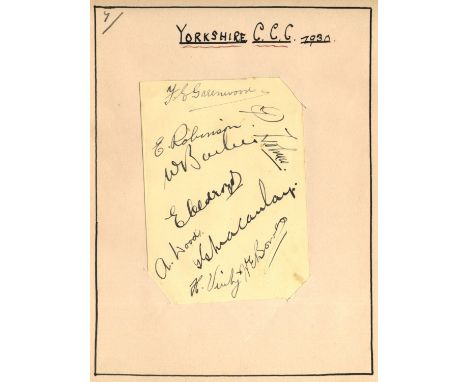 7
YORKSHIRE C.C.C. 1930.
F E Greenwood
E. Robinson
W Barber
E Oldroyd
A. Wood
G G Macaulay.
H. Verity W E Bowes